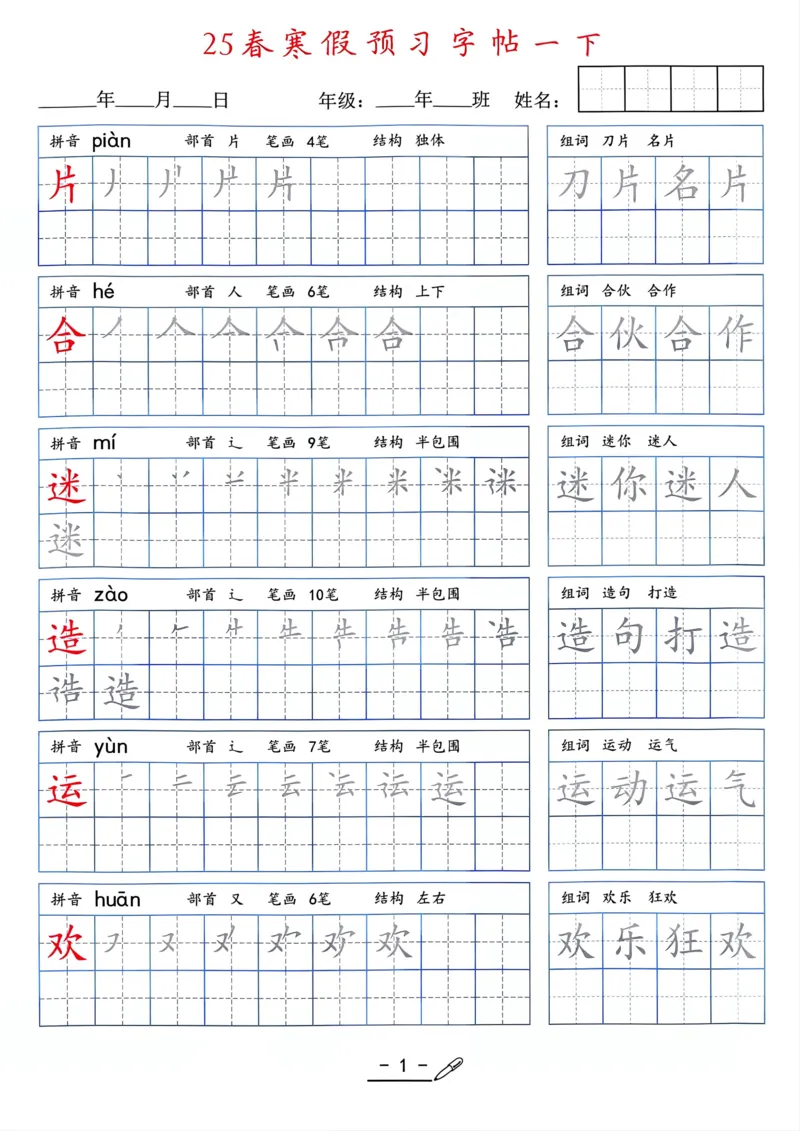 25春寒假预习字帖一下
______年____月____日 年级：____年____班 姓名：
拼音 piàn 部首 片 笔画 4笔 结构 独体 组词 刀片 名片
片 刀片名片
拼音 hé 部首 人 笔画 6笔 结构 上下 组词 合伙 合作
合 合 合伙合作
拼音 mí 部首 辶 笔画 9笔 结构 半包围 组词 迷你 迷人
迷 迷你迷人
迷
拼音 zào 部首 辶 笔画 10笔 结构 半包围 组词 造句 打造
造 造句打造
造
拼音 yùn 部首 辶 笔画 7笔 结构 半包围 组词 运动 运气
运 运 运动运气
拼音 huān 部首 又 笔画 6笔 结构 左右 组词 欢乐 狂欢
欢 欢 欢乐狂欢
- 1 -